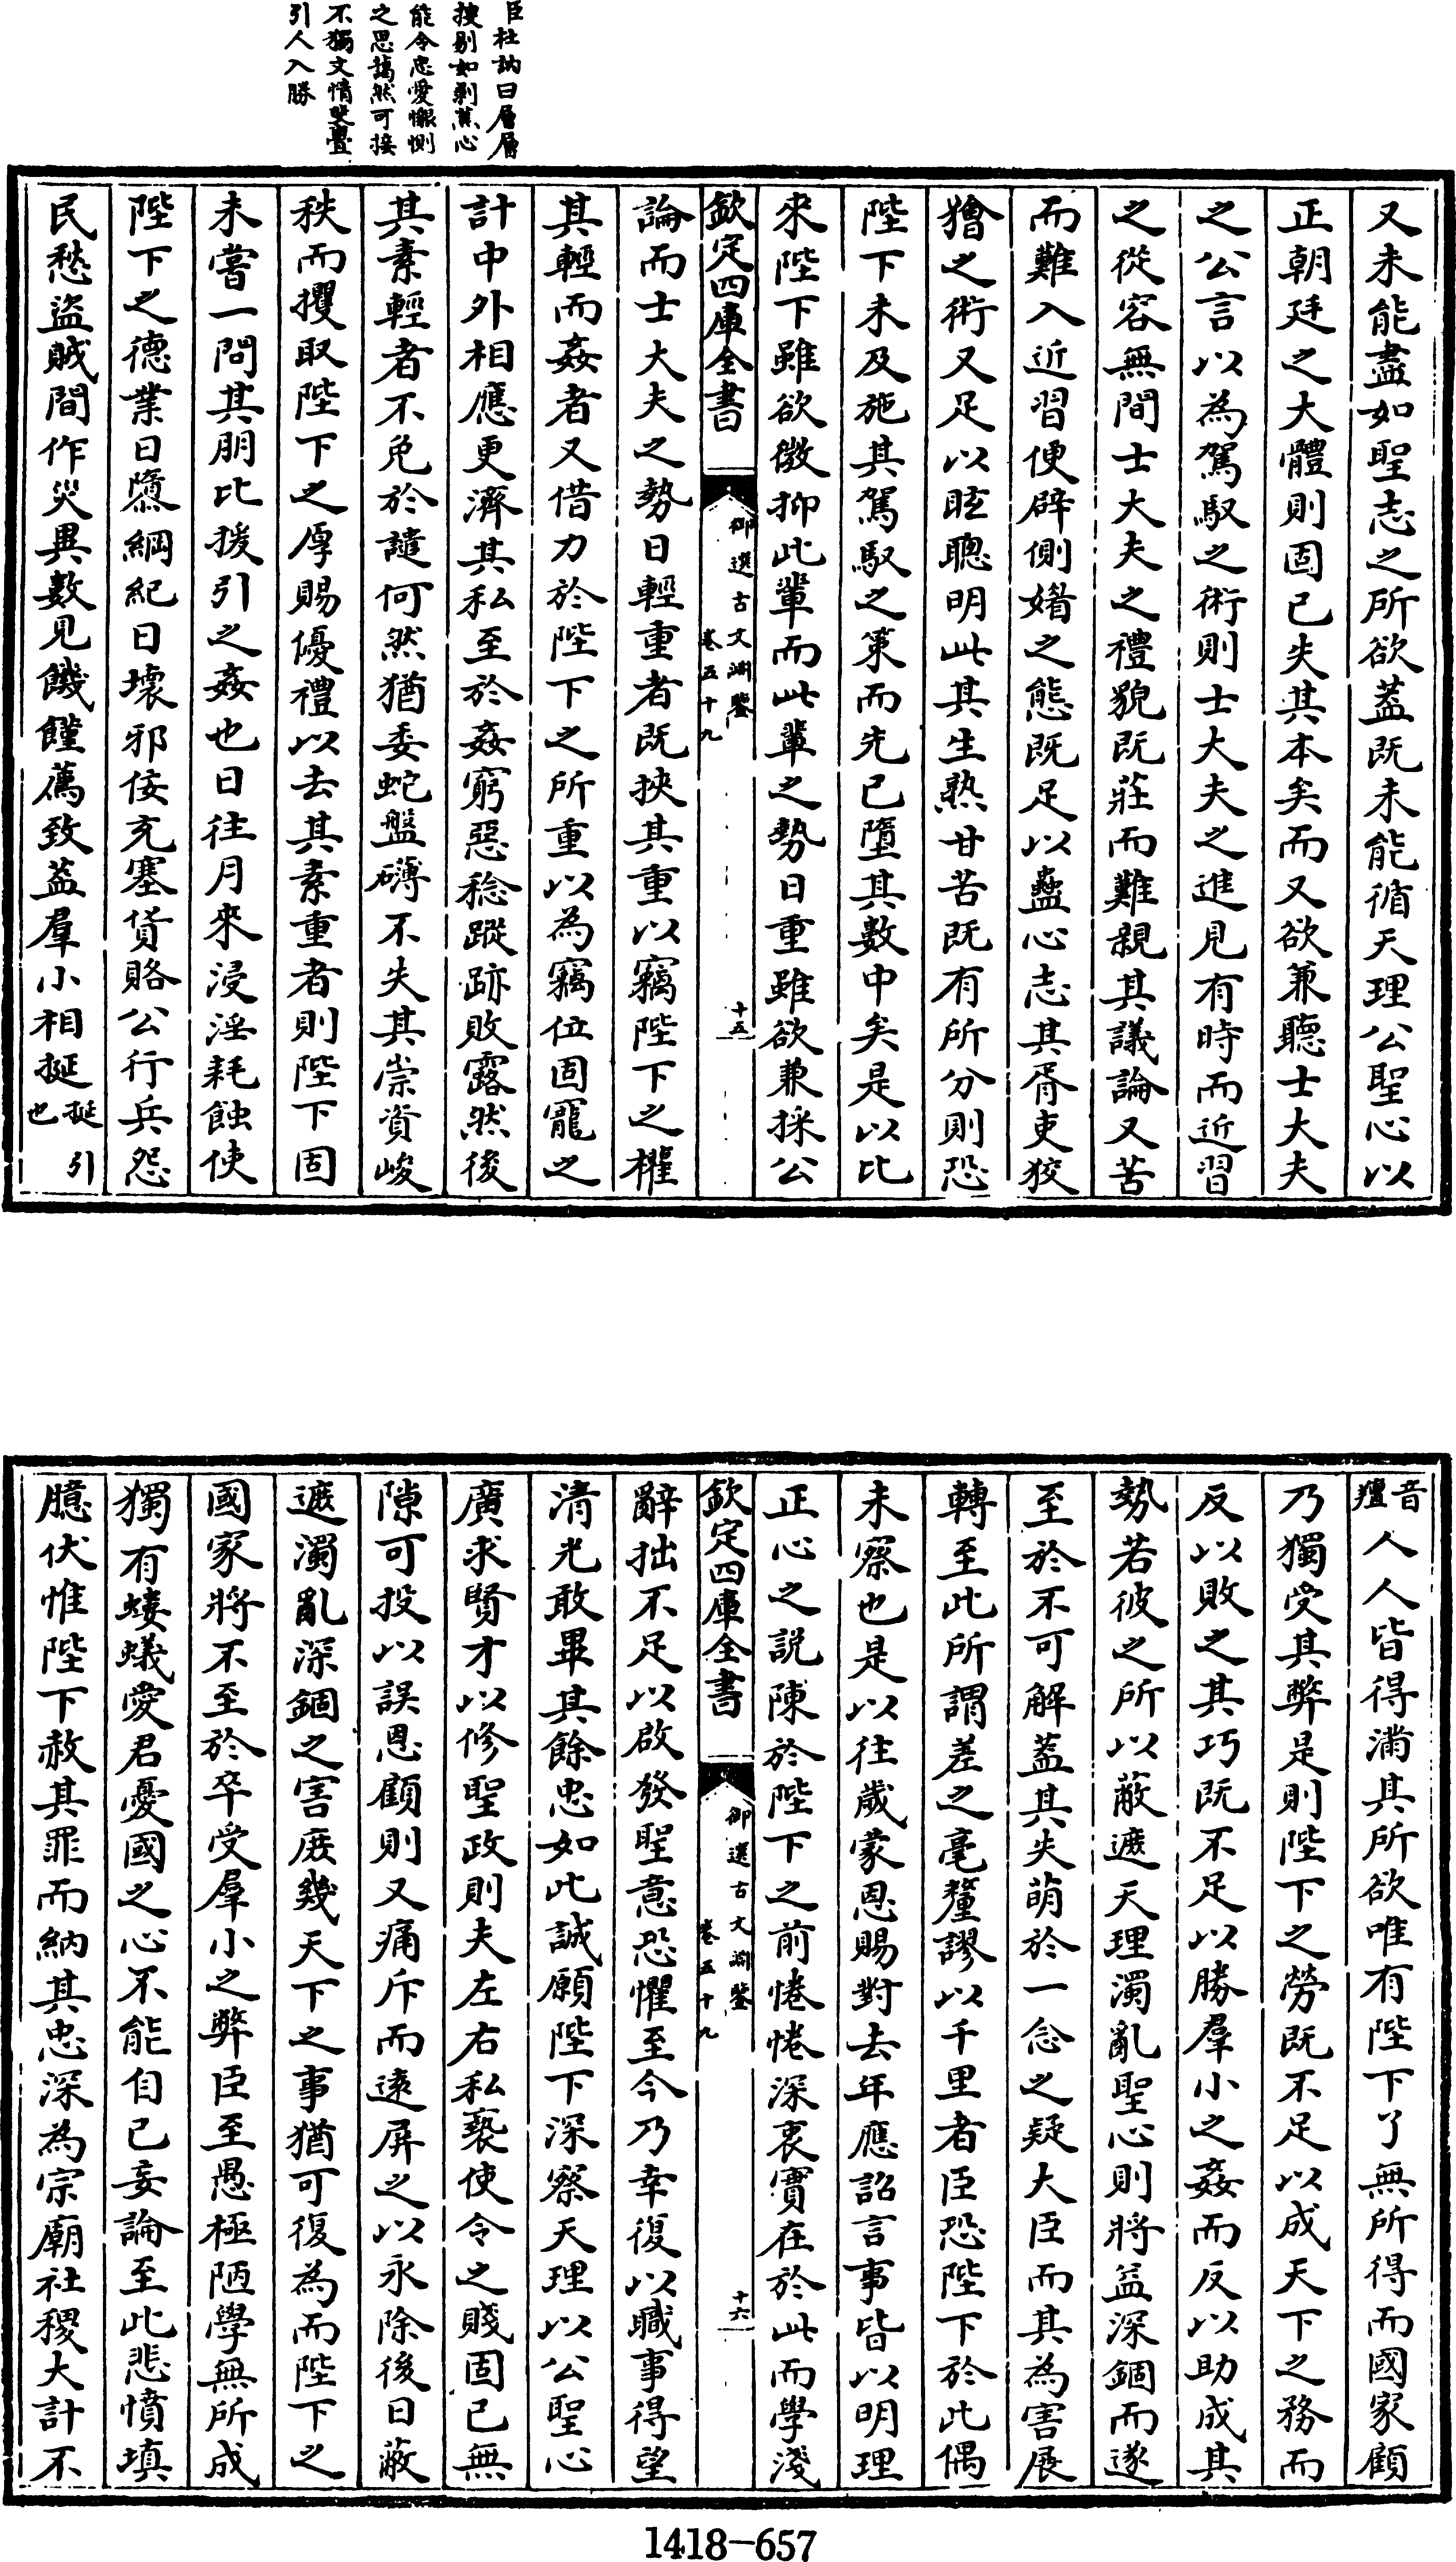 臣杜訥曰層層
搜剔如剥蕉心
能令忠愛懇惻
之思藹然可接
不獨文情雙疊
引人入勝
又未能盡如聖志之所欲蓋既未能循天理公聖心以
正朝廷之大體則固已失其本矣而又欲兼聽士大夫
之公言以為駕馭之術則士大夫之進見有時而近習
之從容無間士大夫之禮貌既莊而難親其議論又苦
而難入近習便辟側媚之態既足以蠱心志其胥吏狡
獪之術又足以眩聰明此其生熟甘苦既有所分則恐
陛下未及施其駕馭之策而先已墮其數中矣是以比
來陛下雖欲微抑此輩而此輩之勢日重雖欲兼採公
欽定四庫全書
御選古文淵鑒
卷五十九
十五
論而士大夫之勢日輕重者既挾其重以竊陛下之權
其輕而姦者又借力於陛下之所重以為竊位固寵之
計中外相應更濟其私至於姦窮惡稔蹤跡敗露然後
其素輕者不免於譴何然猶委蛇盤礴不失其崇資峻
秩而攫取陛下之厚賜優禮以去其素重者則陛下固
未嘗一問其朋比援引之姦也日往月來浸淫耗蝕使
陛下之德業日隳綱紀日壞邪佞充塞貨賂公行兵怨
民愁盜賊間作災異數見饑饉薦致蓋羣小相挻挻引
也
音
羶人人皆得滿其所欲唯有陛下了無所得而國家顧
乃獨受其弊是則陛下之勞既不足以成天下之務而
反以敗之其巧既不足以勝羣小之姦而反以助成其
勢若彼之所以蔽遮天理濁亂聖心則將益深錮而遂
至於不可解蓋其失萌於一念之疑大臣而其為害展
轉至此所謂差之毫釐謬以千里者臣恐陛下於此偶
未察也是以往歲蒙恩賜對去年應詔言事皆以明理
正心之説陳於陛下之前惓惓深衷實在於此而學淺
欽定四庫全書
御選古文淵鑒
卷五十九
十六
辭拙不足以啟發聖意恐懼至今乃幸復以職事得望
清光敢畢其餘忠如此誠願陛下深察天理以公聖心
廣求賢才以修聖政則夫左右私褻使令之賤固已無
隙可投以誤恩顧則又痛斥而遠屏之以永除後日蔽
遮濁亂深錮之害庶幾天下之事猶可復為而陛下之
國家將不至於卒受羣小之弊臣至愚極陋學無所成
獨有螻蟻愛君憂國之心不能自已妄論至此悲憤填
臆伏惟陛下赦其罪而納其忠深為宗廟社稷大計不
1418-657